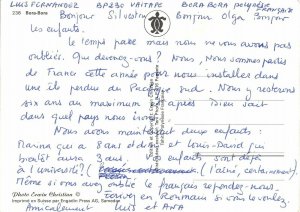 LUIS FERNANDEZ BP230 VAITAPE BORA BORA POLYNÉSIE
FRANÇAISE
236 Bora-Bora
Bonjour Silvestre Bonjour Olga Bonjour
les enfants.
le temps passe mais nous ne vous avons pas
oubliés. Que devenez vous? Nous, Nous sommes partis
de France cette année pour nous installer dans
une île perdue du Pacifique sud. Nous y resterons
six ans au maximum et après Dieu sait
dans quel pays nous irons.
Nous avons maintenant deux enfants:
Marina qui a 5 ans et demi et Louis-David qui
bientôt aura 3 ans. enfants sont déjà
à l'université! (l'aîné, certainement).
Même si vous avez oublié le français répondez-nous.
en Roumain si vous voulez.
Amicalement Luis et ANA
Photo Erwin Christian ©
Imprimé en Suisse par Engadin Press AG, Samedan